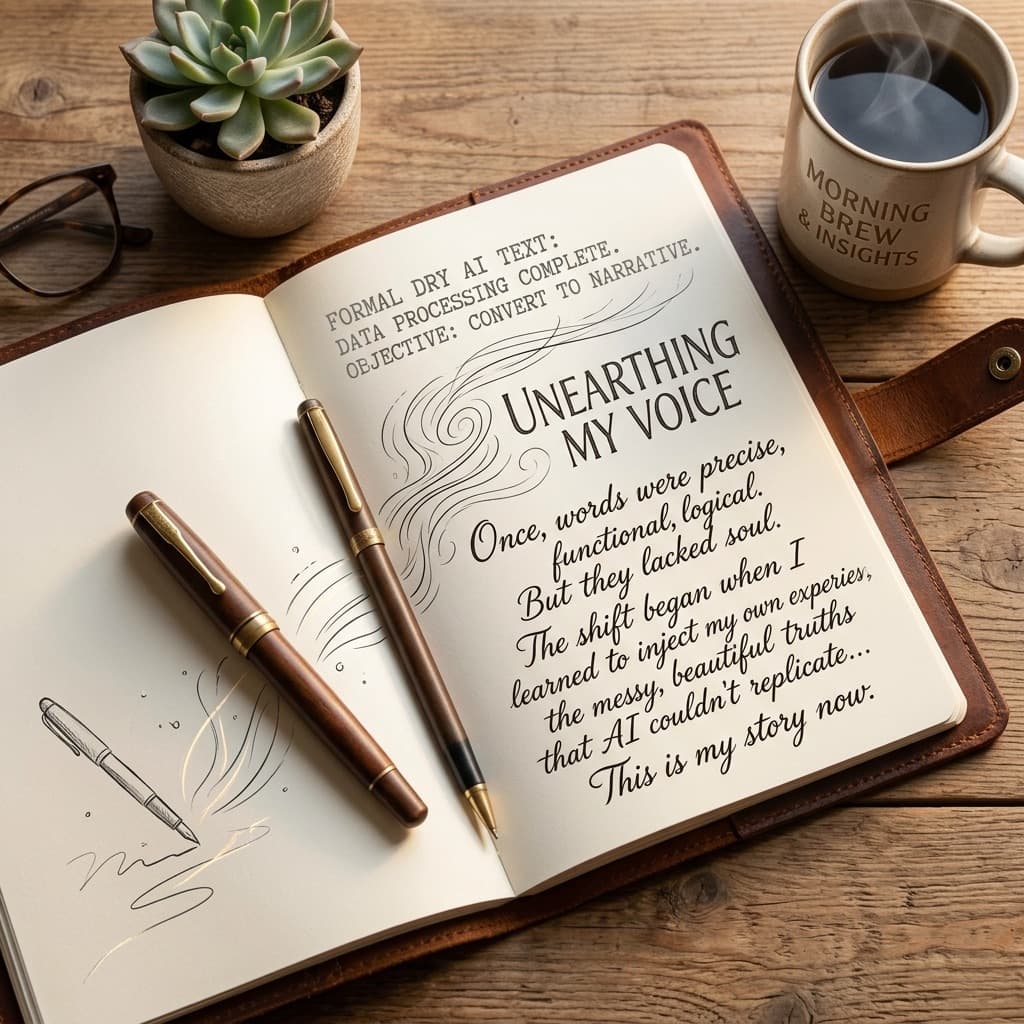 FORMAL DRY AI TEXT:
DATA PROCESSING COMPLETE.
OBJECTIVE: CONVERT TO NARRATIVE.
UNEARTHING
MY VOICE
Once, words were precise,
functional, logical.
But they lacked soul.
The shift began when I
learned to inject my own experies,
the messy, beautiful truths
that AI couldn't replicate...
This is my story now.
MORNING
BREW
& INSIGHTS